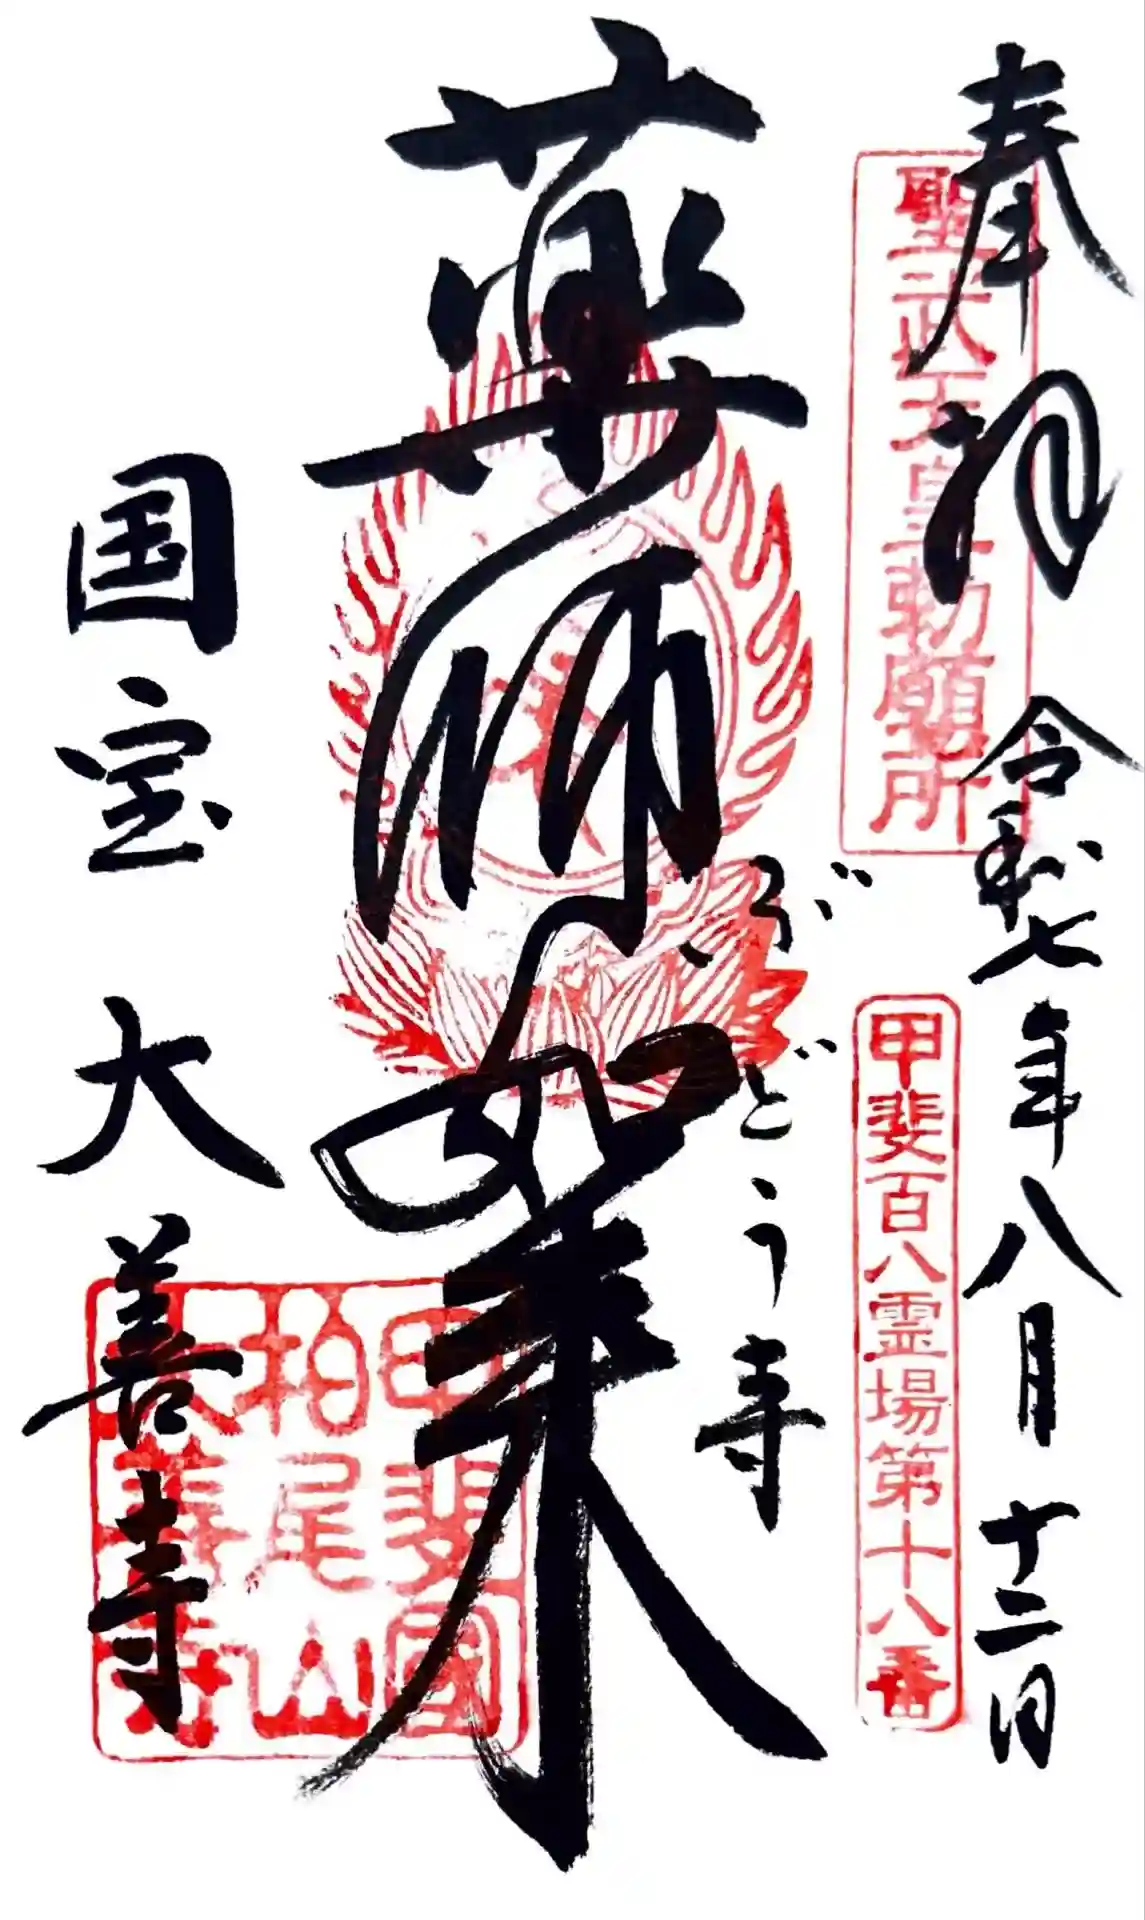 奉拝
令和七年八月十二日
聖武天皇勅願所
甲斐百八霊場第十八番
ぶどう寺
薬師如来
国宝
大善寺
甲斐國
柏尾山
大善寺